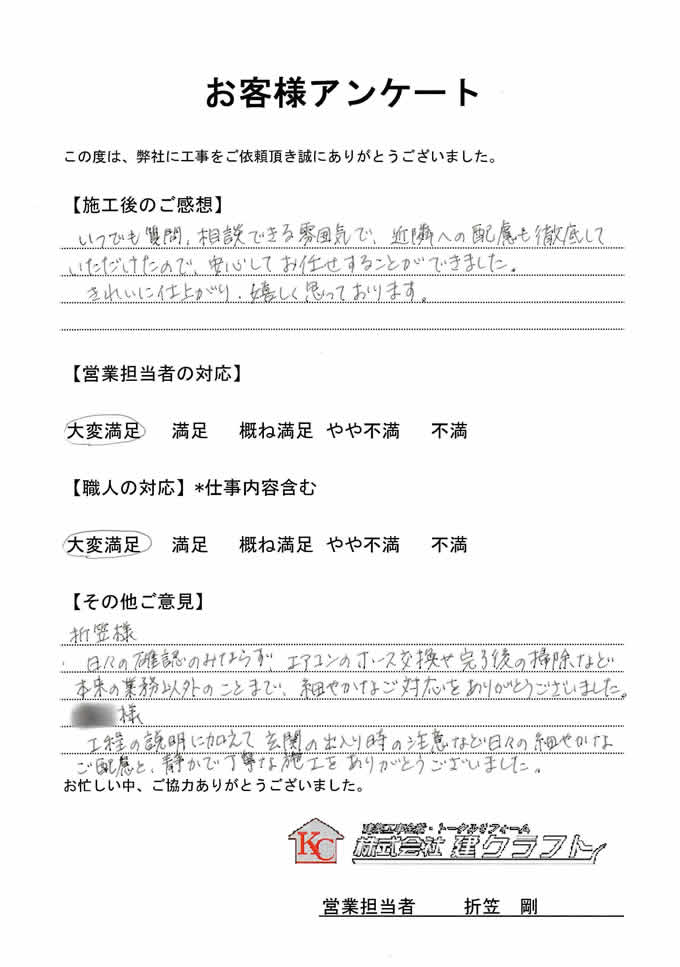 お客様アンケート
この度は、弊社に工事をご依頼頂き誠にありがとうございました。
【施工後のご感想】
いつでも質問、相談できる雰囲気で、近隣への配慮も徹底して
いただけたので、安心してお任せすることができました。
きれいに仕上がり、嬉しく思っております。
【営業担当者の対応】
大変満足 満足 概ね満足 やや不満 不満
【職人の対応】*仕事内容含む
大変満足 満足 概ね満足 やや不満 不満
【その他ご意見】
折笠様
日々の確認のみならず、エアコンのホース交換や完了後の掃除など
本来の業務以外のことまで、細やかなご対応をありがとうございました。
様
工程の説明に加えて玄関の出入り時の注意など日々の細やかな
ご配慮と、静かで丁寧な施工をありがとうございました。
お忙しい中、ご協力ありがとうございました。
KC
建築工事全般・トータルリフォーム
株式会社 建クラフト
営業担当者 折笠 剛